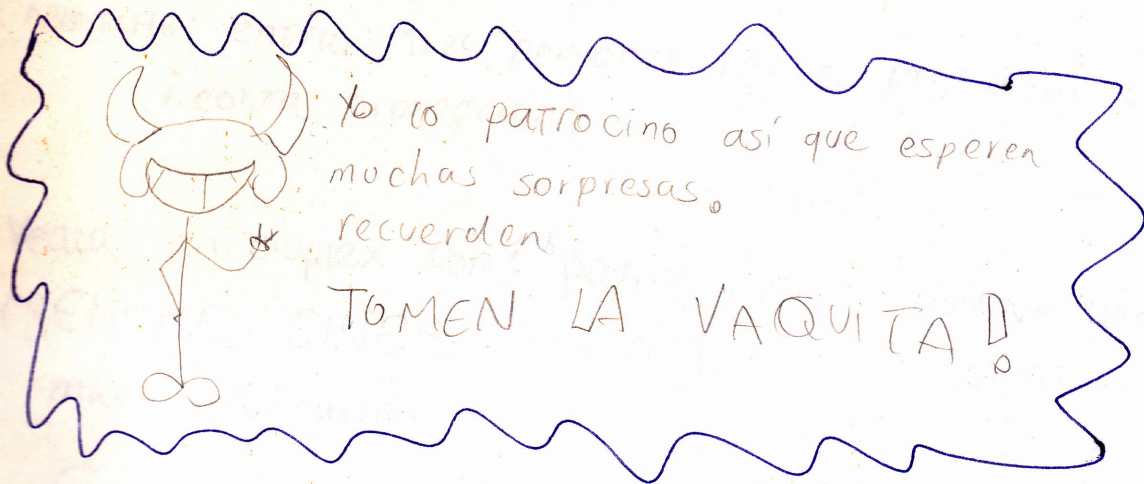 Yo lo patrocino así que esperen
muchas sorpresas.
recuerden
TOMEN LA VAQUITA!